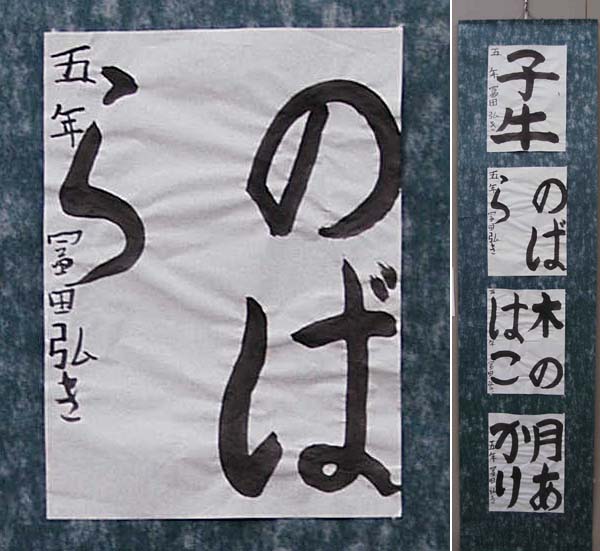 のば
ら
五年 冨田弘き
子牛
五年 冨田弘き
のば
ら
五年 冨田弘き
木の
はこ
月あ
かり
五年 冨田弘き